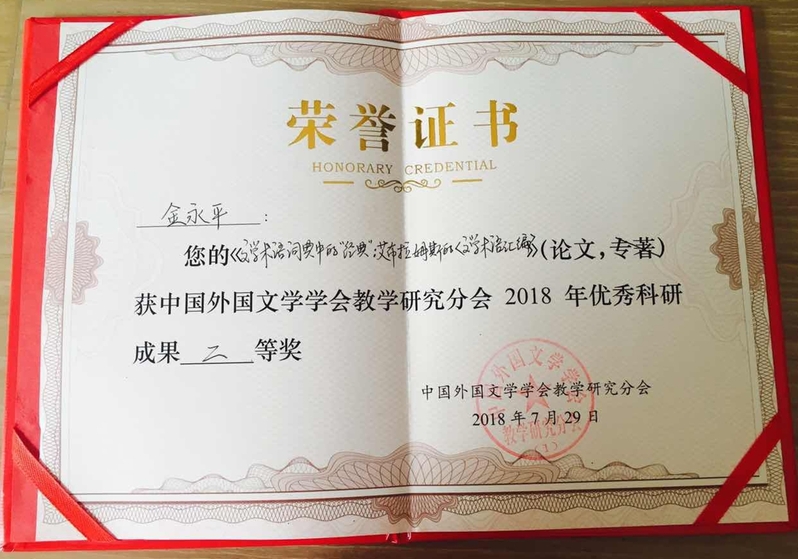 荣誉证书
HONORARY CREDENTIAL
金永平:
您的《文学术语词典中的“经典”:艾布拉姆斯的《文学术语汇编》》(论文,专著)
获中国外国文学学会教学研究分会 2018 年优秀科研
成果二等奖
中国外国文学学会教学研究分会
2018 年 7 月 29 日
中国外国文学学会
教学研究分会
(1)